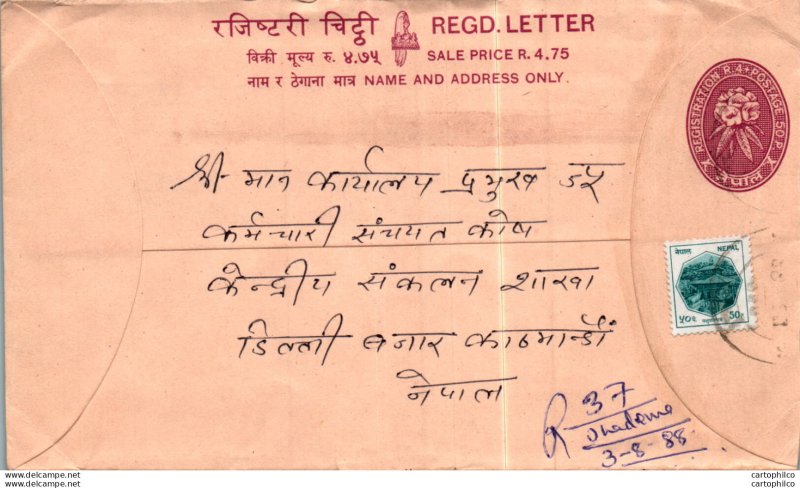 रजिष्टरी चिट्ठी REGD. LETTER
विक्री मूल्य रु. ४.७५ SALE PRICE R. 4.75
नाम र ठेगाना मात्र NAME AND ADDRESS ONLY.
REGISTRATION R.4+POSTAGE 50P.
नेपाल
श्री मान कार्यालय प्रमुख ज्यू
कर्मचारी संचयत कोष
केन्द्रीय संकलन शाखा
डिल्ली बजार काठमान्डौं
नेपाल
नेपाल NEPAL
५०प 50p
R 37
3-8-88
www.delcampe.net
cartophilco
www.delcampe.net
cartophilco